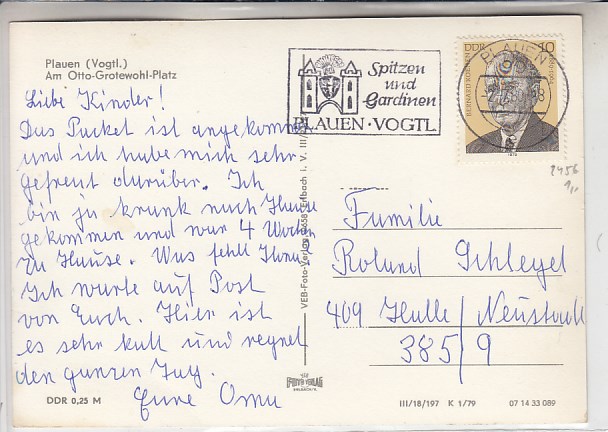 Plauen (Vogtl.)
Am Otto-Grotewohl-Platz
Liebe Kinder!
Das Packet ist angekommen
und ich habe mich sehr
gefreut darüber. Ich
bin ja krank nach Hause
gekommen und war 4 Wochen
zu Hause. Was fehlt Ihnen
Ich warte auf Post
von Euch. Hier ist
es sehr kalt und regnet
den ganzen Tag.
Eure Oma
DDR 0,25 M
VEB-Foto-Verlag 9658 Erlbach i. V. III/
FOTO VERLAG
ERLBACH/V.
Spitzen
und
Gardinen
PLAUEN · VOGTL
PLAUEN
DDR 10
BERNARD KOENEN
2456
Familie
Roland Schlegel
409 Halle/Neustadt
385/9
III/18/197 K 1/79 07 14 33 089